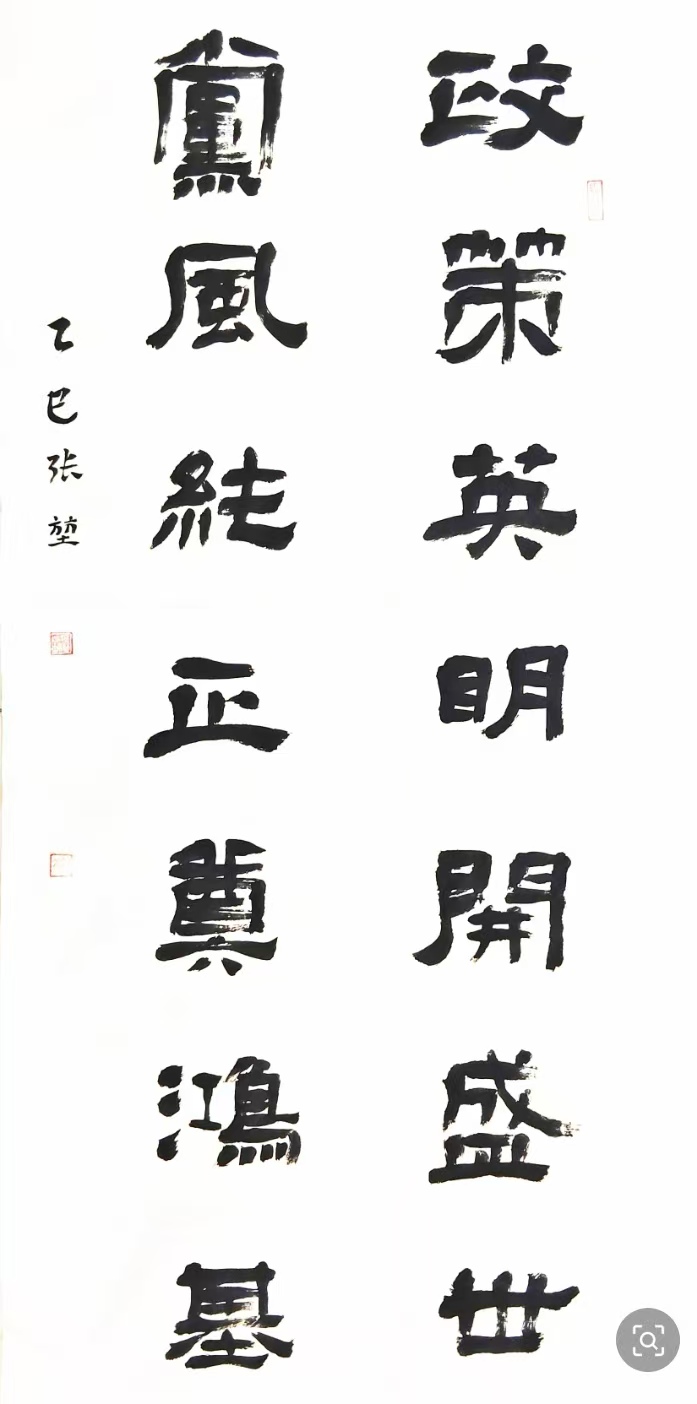 政策英明開盛世
黨風純正奠鴻基
乙巳張堃